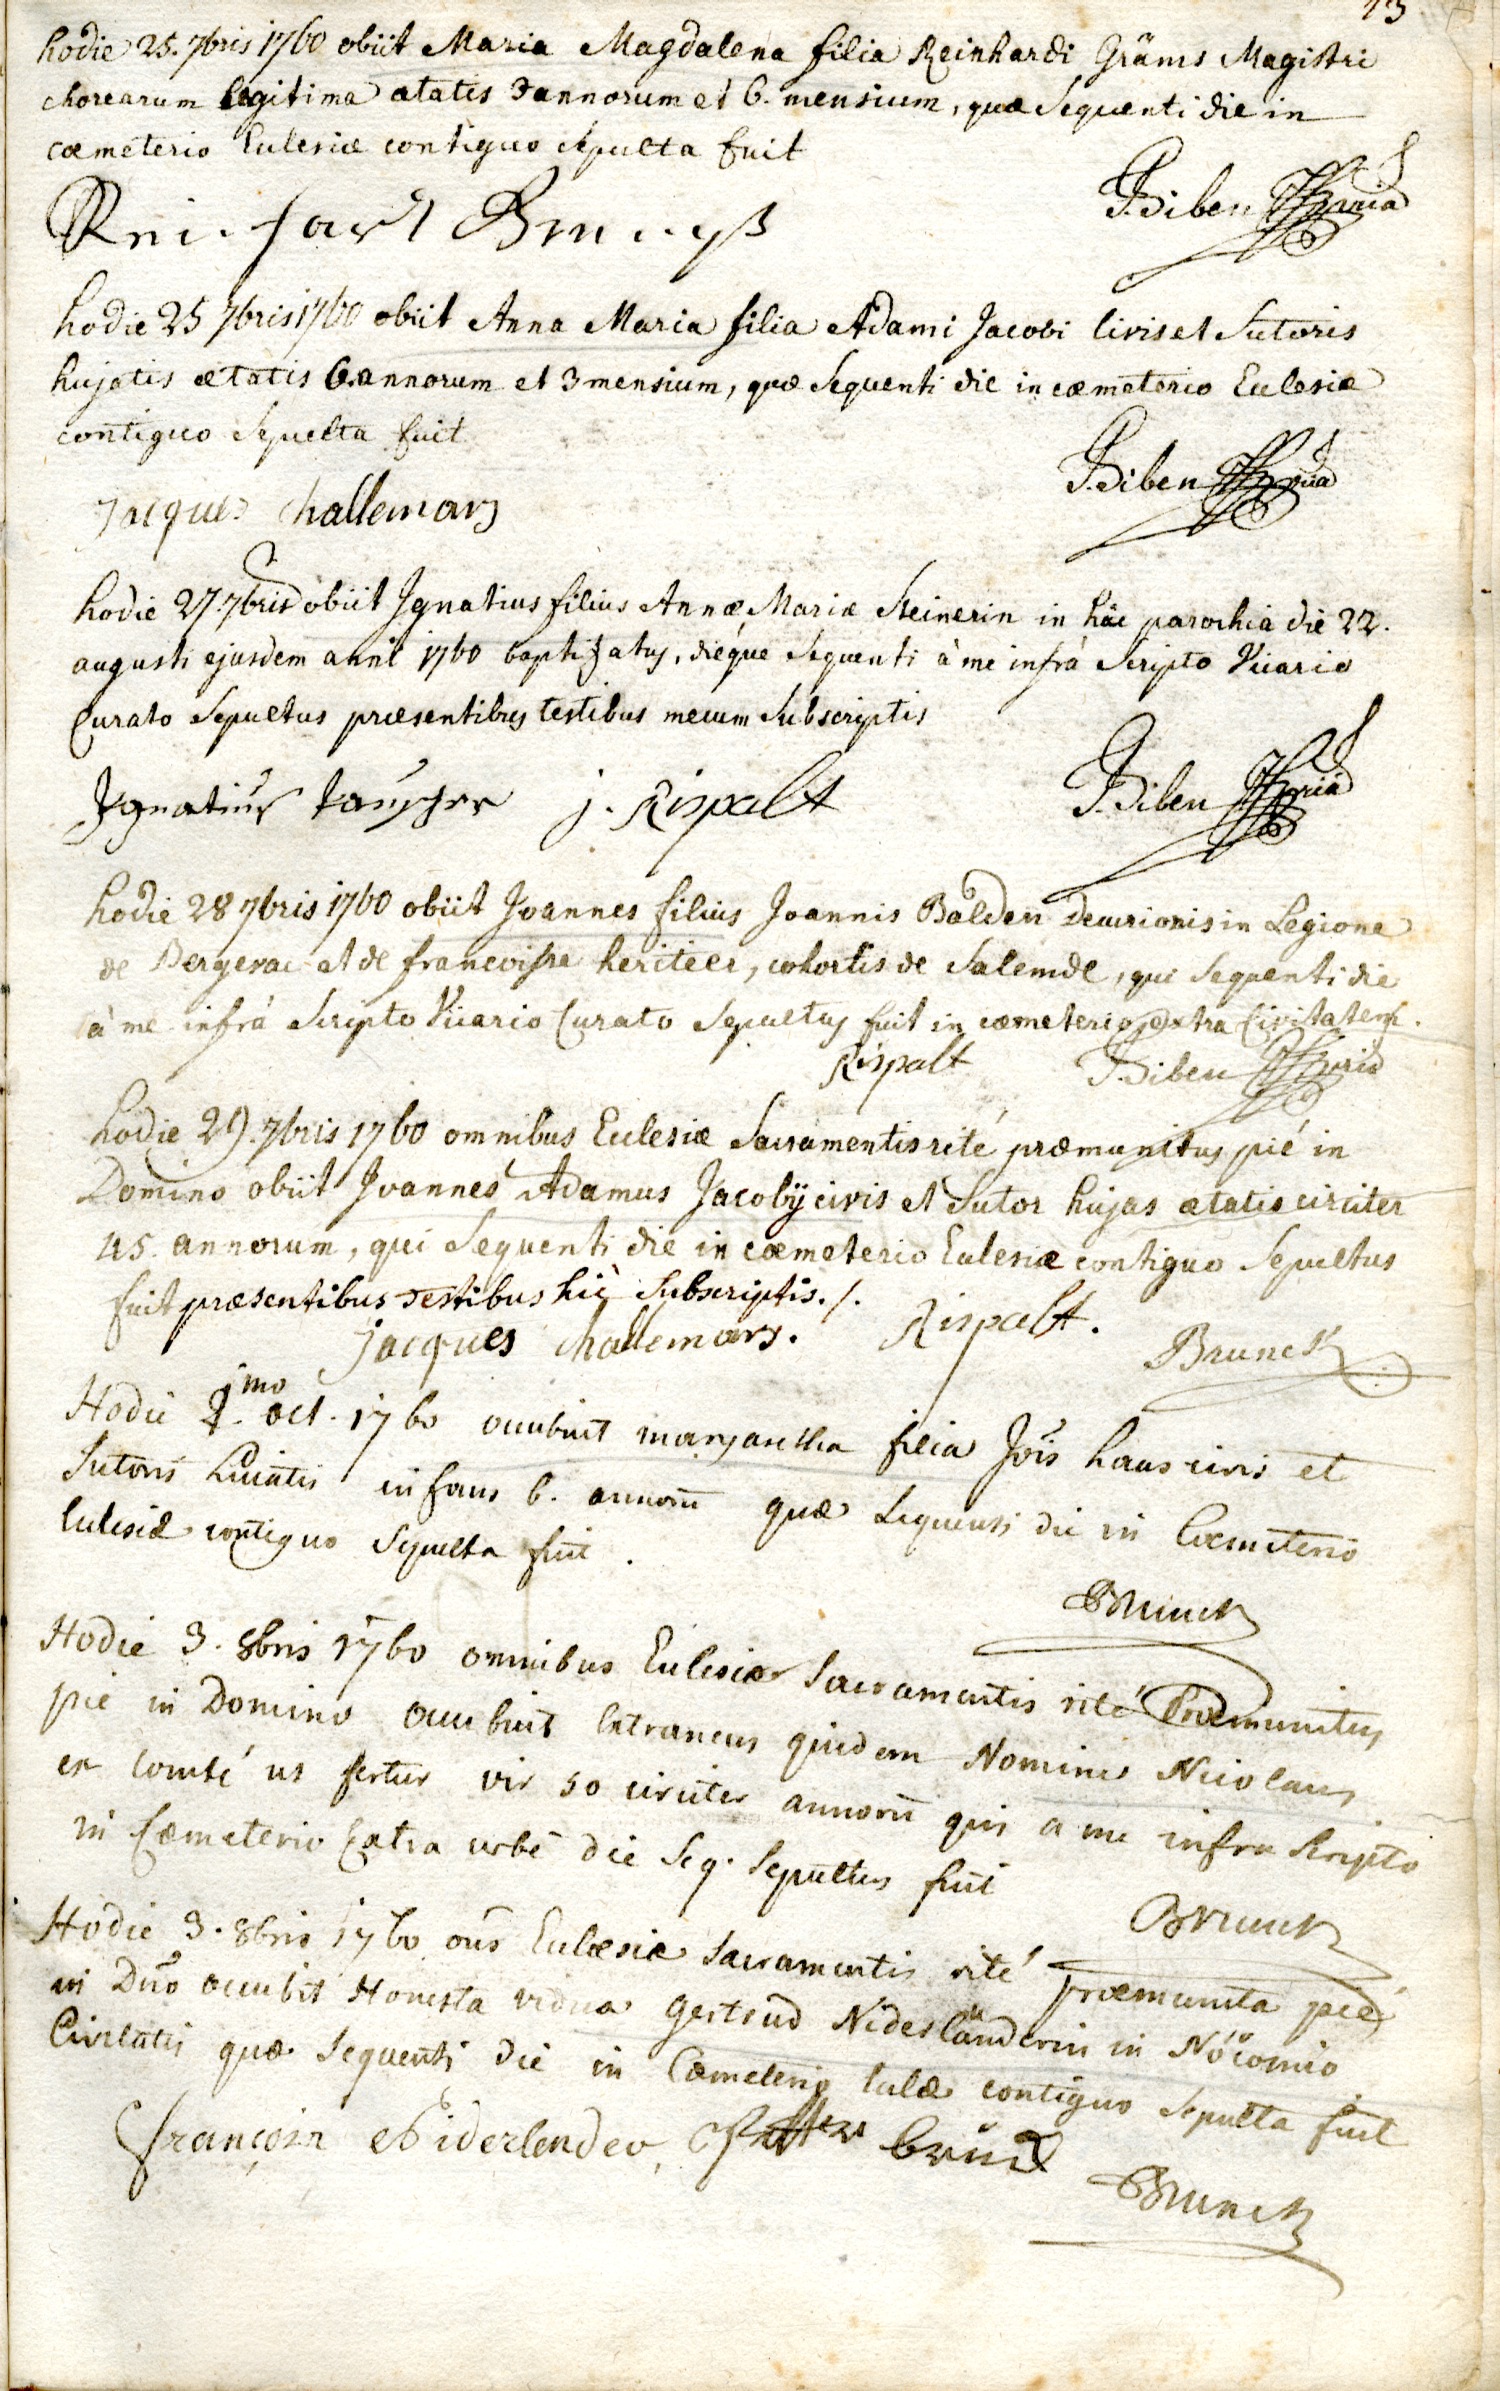 13
hodie 25. 7bris 1760 obiit Maria Magdalena filia Reinhardi Gräms Magistri
chorearum legitima ætatis 3 annorum et 6. mensium, quæ Sequenti die in
cœmeterio Eclesiæ contiguo sepulta fuit
J. Siben
hodie 25 7bris 1760 obiit Anna Maria filia Adami Jacobi Civis et Sutoris
hujatis ætatis 6 annorum et 3 mensium, quæ Sequenti die in cœmeterio Eclesiæ
contiguo Sepulta fuit
J. Siben
Jacques challemars
hodie 27. 7bris obiit Ignatius filius Annæ Mariæ Steinerin in hác parochiâ die 22.
augusti ejusdem anni 1760 baptizatus, dieque Sequenti à me infrà Scripto Vicario
Curato Sepultus præsentibus testibus mecum Subscriptis
Ignatius J. Rispalt J. Siben
hodie 28 7bris 1760 obiit Joannes filius Joannis Balden decurionis in Legione
de Bergerac et de francoisse heritier, cohortis de Salemde, qui Sequenti die
à me infrà Scripto Vicario Curato Sepultus fuit in cœmeterio extra Civitatem.
Rispalt J. Siben
hodie 29. 7bris 1760 omnibus Eclesiæ Sacramentis rité præmunitus pié in
Domino obiit Joannes Adamus Jacobÿ civis et Sutor hujas ætatis circiter
45. annorum, qui Sequenti die in cœmeterio Eclesiæ contiguo Sepultus
fuit præsentibus Testibus hic Subscriptis ./.
jacques challemars. Rispalt. Brunck
Hodie 1mo oct. 1760 occubuit margaretha filia Jois haus civis et
Sutoris huiatis infans 6. annorū quæ Sequenti die in Cœmeterio
Eclesiæ contiguo Sepulta fuit.
Brunck
Hodie 3. 8bris 1760 omnibus Eclesiæ Sacramentis rité Præmunitus
pie in Domino occubuit Extraneus quidem Nomine Nicolaus
ex Comté ut fertur vir 50 circiter annorū qui a me infra Scripto
in Cœmeterio Extra urbē die Seq. Sepultus fuit
Brunck
Hodie 3. 8bris 1760 oūs Eclesiæ Sacramentis rité præmunita pié
in Dno occubit Honesta vidua Gertrud Niderländerin in Nōcomio
Civitatis quæ Sequenti die in Cœmeterio Eclæ contiguo Sepulta fuit
françois Niderlender,
Brunck